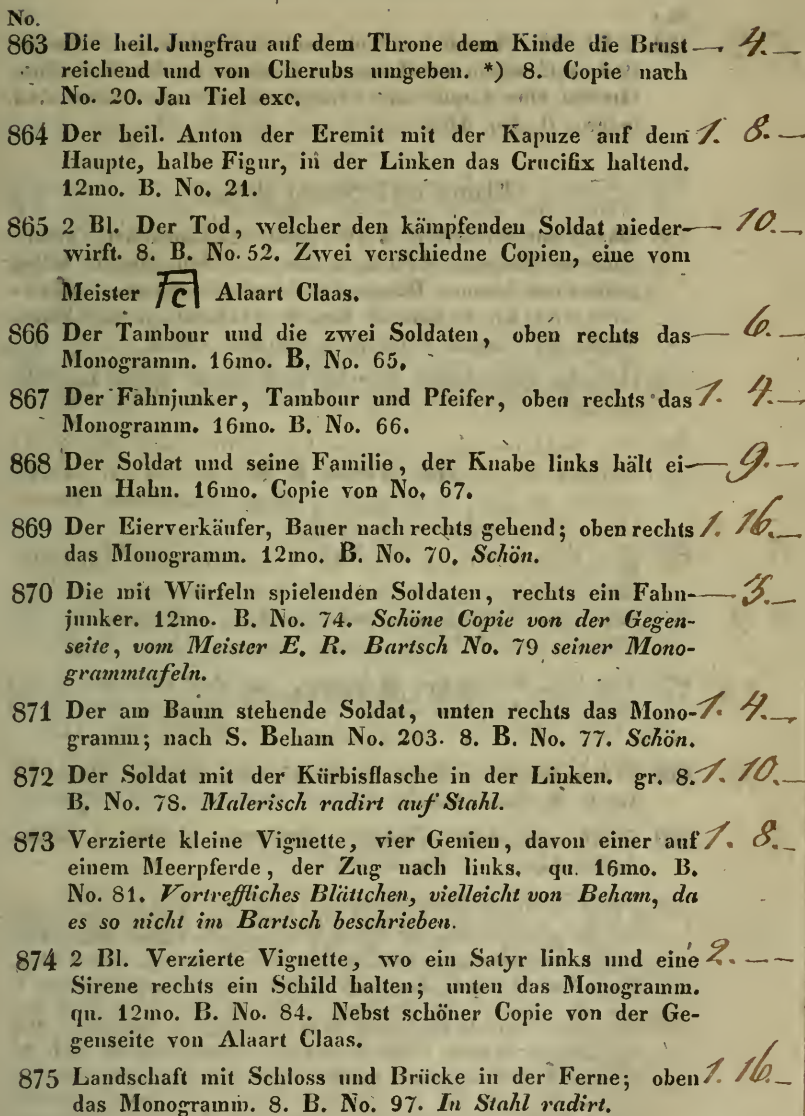 No.
863 Die heil. Jungfrau auf dem Throne dem Kinde die Brust — 4. —
reichend und von Cherubs umgeben. *) 8. Copie nach
No. 20. Jan Tiel exc.
864 Der heil. Anton der Eremit mit der Kapuze auf dem 1. 8. —
Haupte, halbe Figur, in der Linken das Crucifix haltend.
12mo. B. No. 21.
865 2 Bl. Der Tod, welcher den kämpfenden Soldat nieder- — 10. —
wirft. 8. B. No. 52. Zwei verschiedne Copien, eine vom
Meister Alaart Claas.
866 Der Tambour und die zwei Soldaten, oben rechts das — 6. —
Monogramm. 16mo. B. No. 65.
867 Der Fahnjunker, Tambour und Pfeifer, oben rechts das 1. 4. —
Monogramm. 16mo. B. No. 66.
868 Der Soldat und seine Familie, der Knabe links hält ei- — 9. —
nen Hahn. 16mo. Copie von No. 67.
869 Der Eierverkäufer, Bauer nach rechts gehend; oben rechts 1. 16. —
das Monogramm. 12mo. B. No. 70. Schön.
870 Die mit Würfeln spielenden Soldaten, rechts ein Fahn- — 3. —
junker. 12mo. B. No. 74. Schöne Copie von der Gegen-
seite, vom Meister E. R. Bartsch No. 79 seiner Mono-
grammtafeln.
871 Der am Baum stehende Soldat, unten rechts das Mono- 1. 4. —
gramm; nach S. Beham No. 203. 8. B. No. 77. Schön.
872 Der Soldat mit der Kürbisflasche in der Linken. gr. 8. 1. 10. —
B. No. 78. Malerisch radirt auf Stahl.
873 Verzierte kleine Vignette, vier Genien, davon einer auf 1. 8. —
einem Meerpferde, der Zug nach links. qu. 16mo. B.
No. 81. Vortreffliches Blättchen, vielleicht von Beham, da
es so nicht im Bartsch beschrieben.
874 2 Bl. Verzierte Vignette, wo ein Satyr links und eine 2. — —
Sirene rechts ein Schild halten; unten das Monogramm.
qu. 12mo. B. No. 84. Nebst schöner Copie von der Ge-
genseite von Alaart Claas.
875 Landschaft mit Schloss und Brücke in der Ferne; oben 1. 16. —
das Monogramm. 8. B. No. 97. In Stahl radirt.